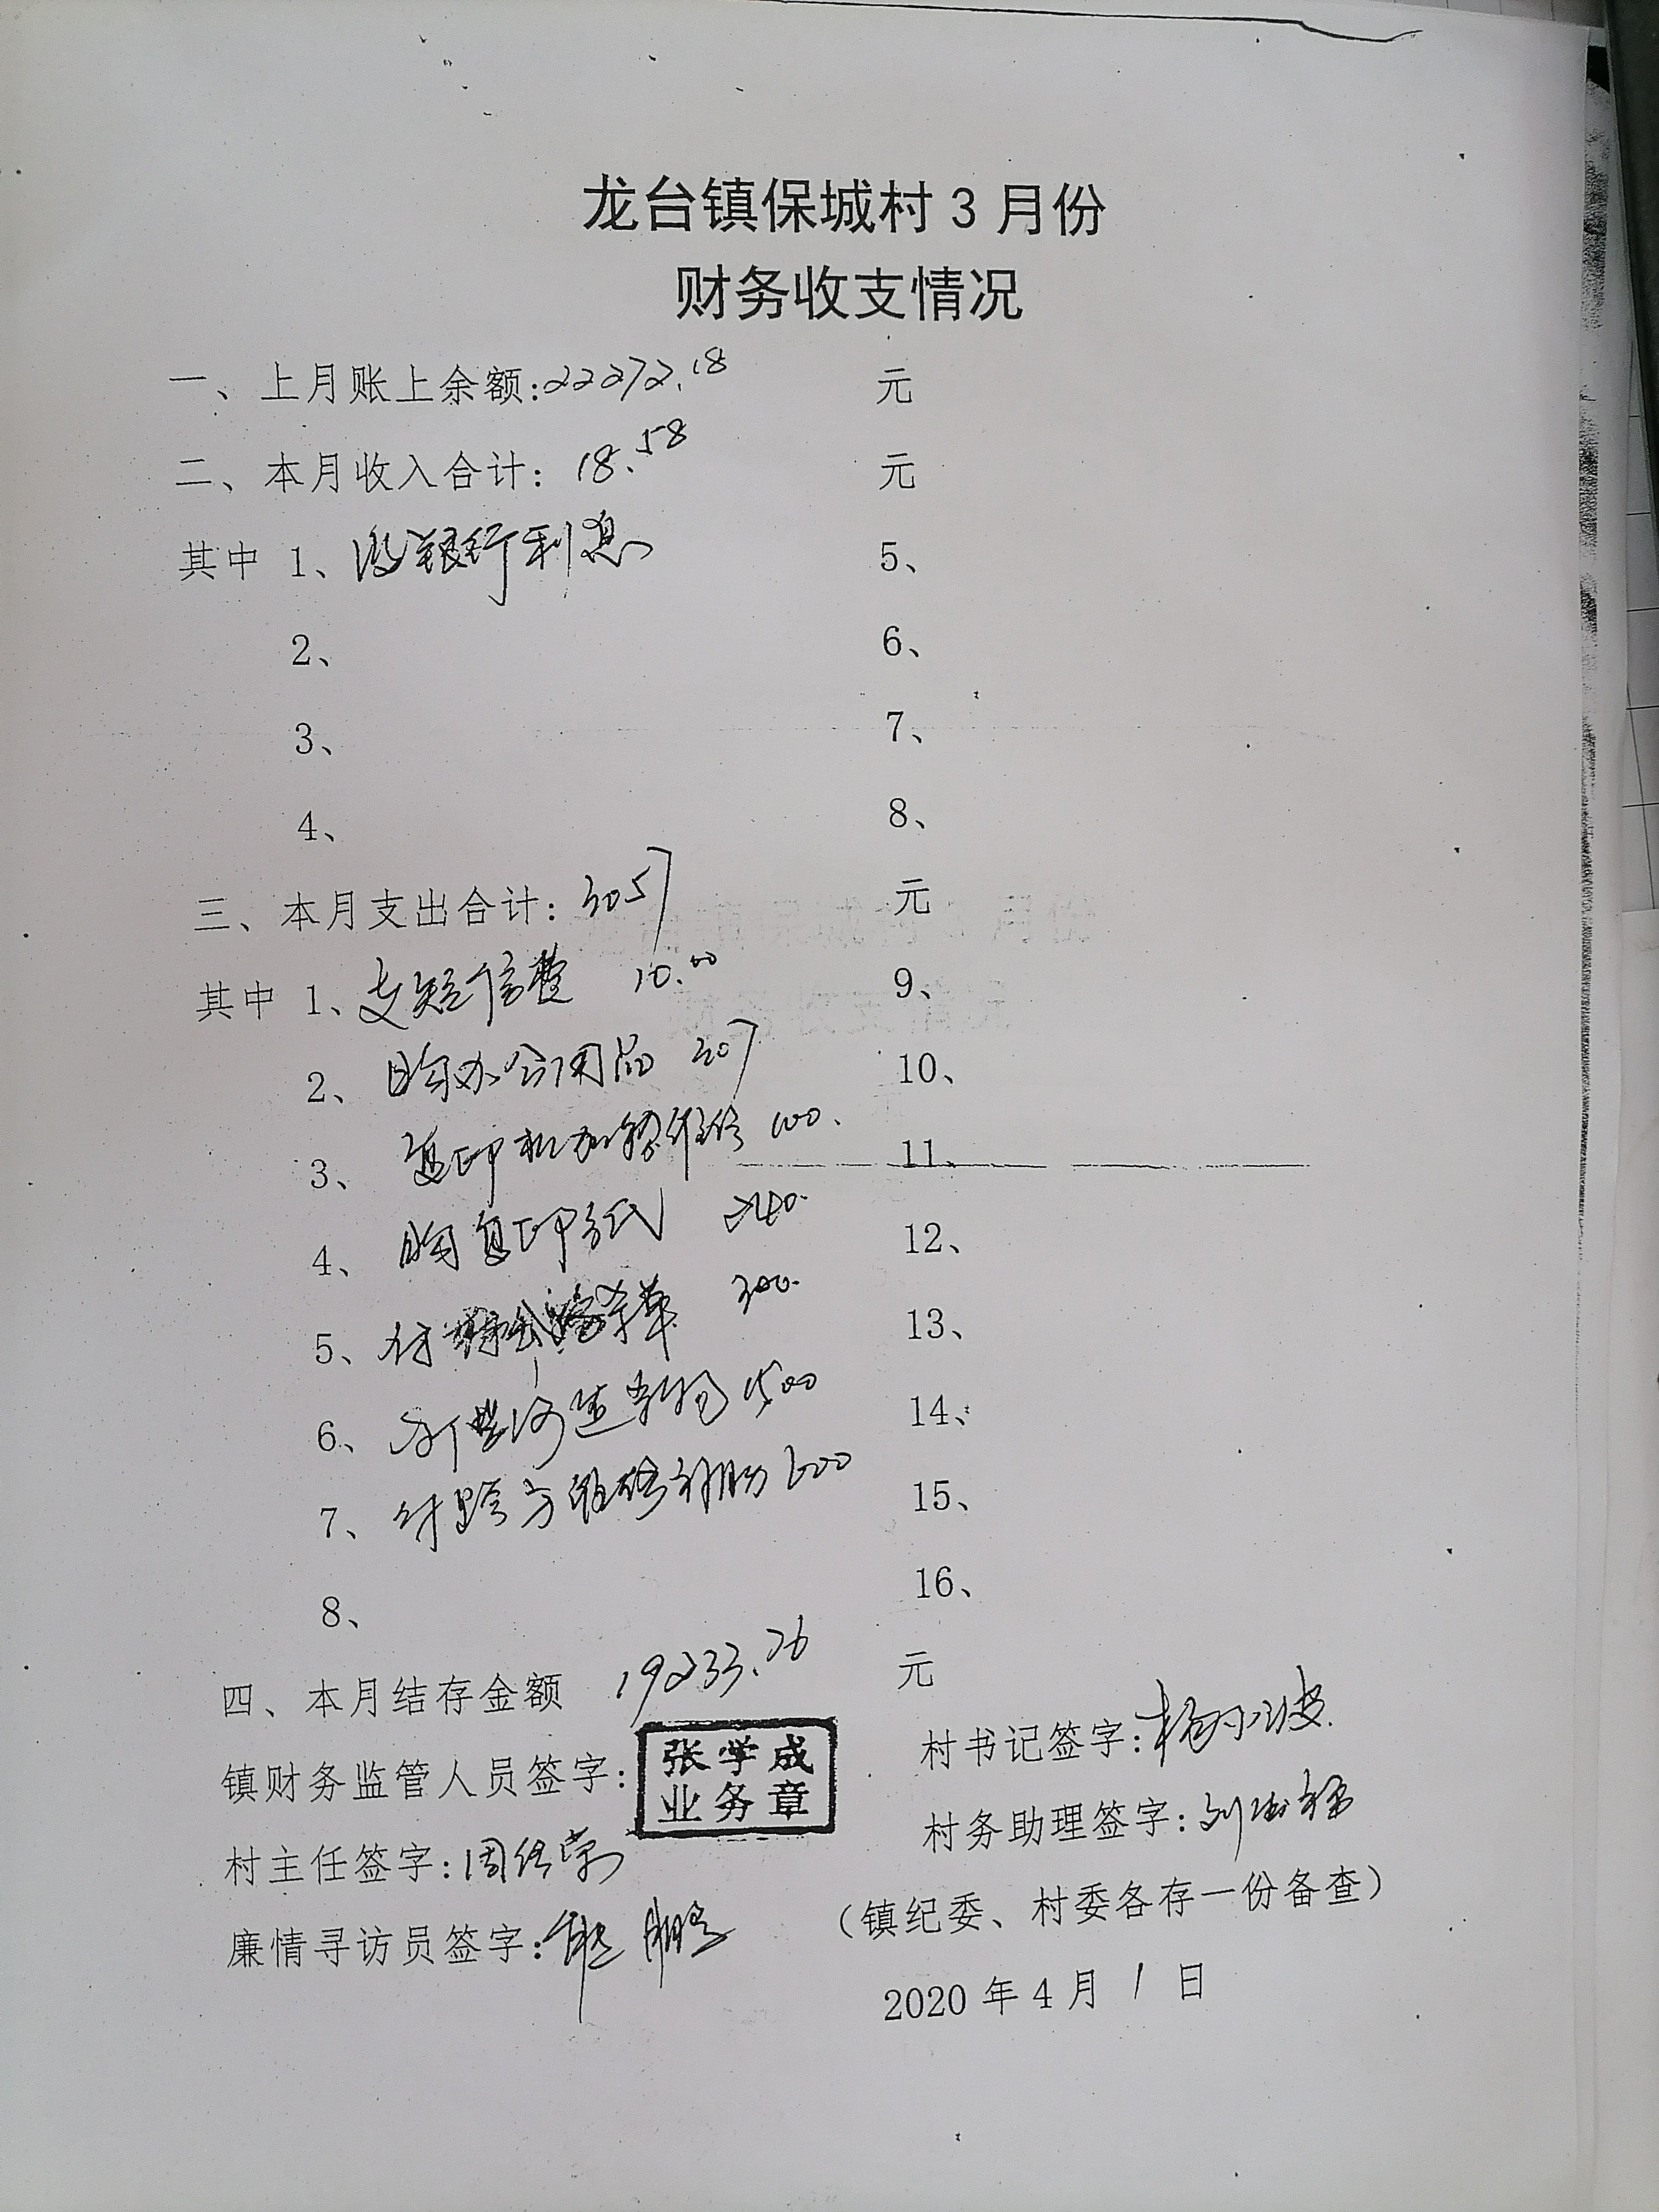 龙台镇保城村3月份
财务收支情况
一、上月账上余额:22272.18 元
二、本月收入合计: 18.58 元
其中 1、收银行利息 5、
2、 6、
3、 7、
4、 8、
三、本月支出合计: 3057 元
其中 1、支短信费 10.00 9、
2、购办公用品 307 10、
3、复印机加粉维修 100. 11、
4、购复印纸 240. 12、
5、付 公路杂草 300. 13、
6、 河道 1500 14、
7、付 房维修补助 600 15、
8、 16、
四、本月结存金额 19233.76 元
镇财务监管人员签字: 张学成 业务章 村书记签字:杨小波
村主任签字:周 荣 村务助理签字:刘
廉情寻访员签字: 鹏 （镇纪委、村委各存一份备查）
2020年4月1日